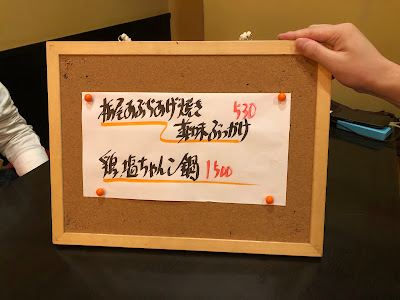 栃尾あぶらあげ焼き 530
薬味ぶっかけ
鶏塩ちゃんこ鍋 1500